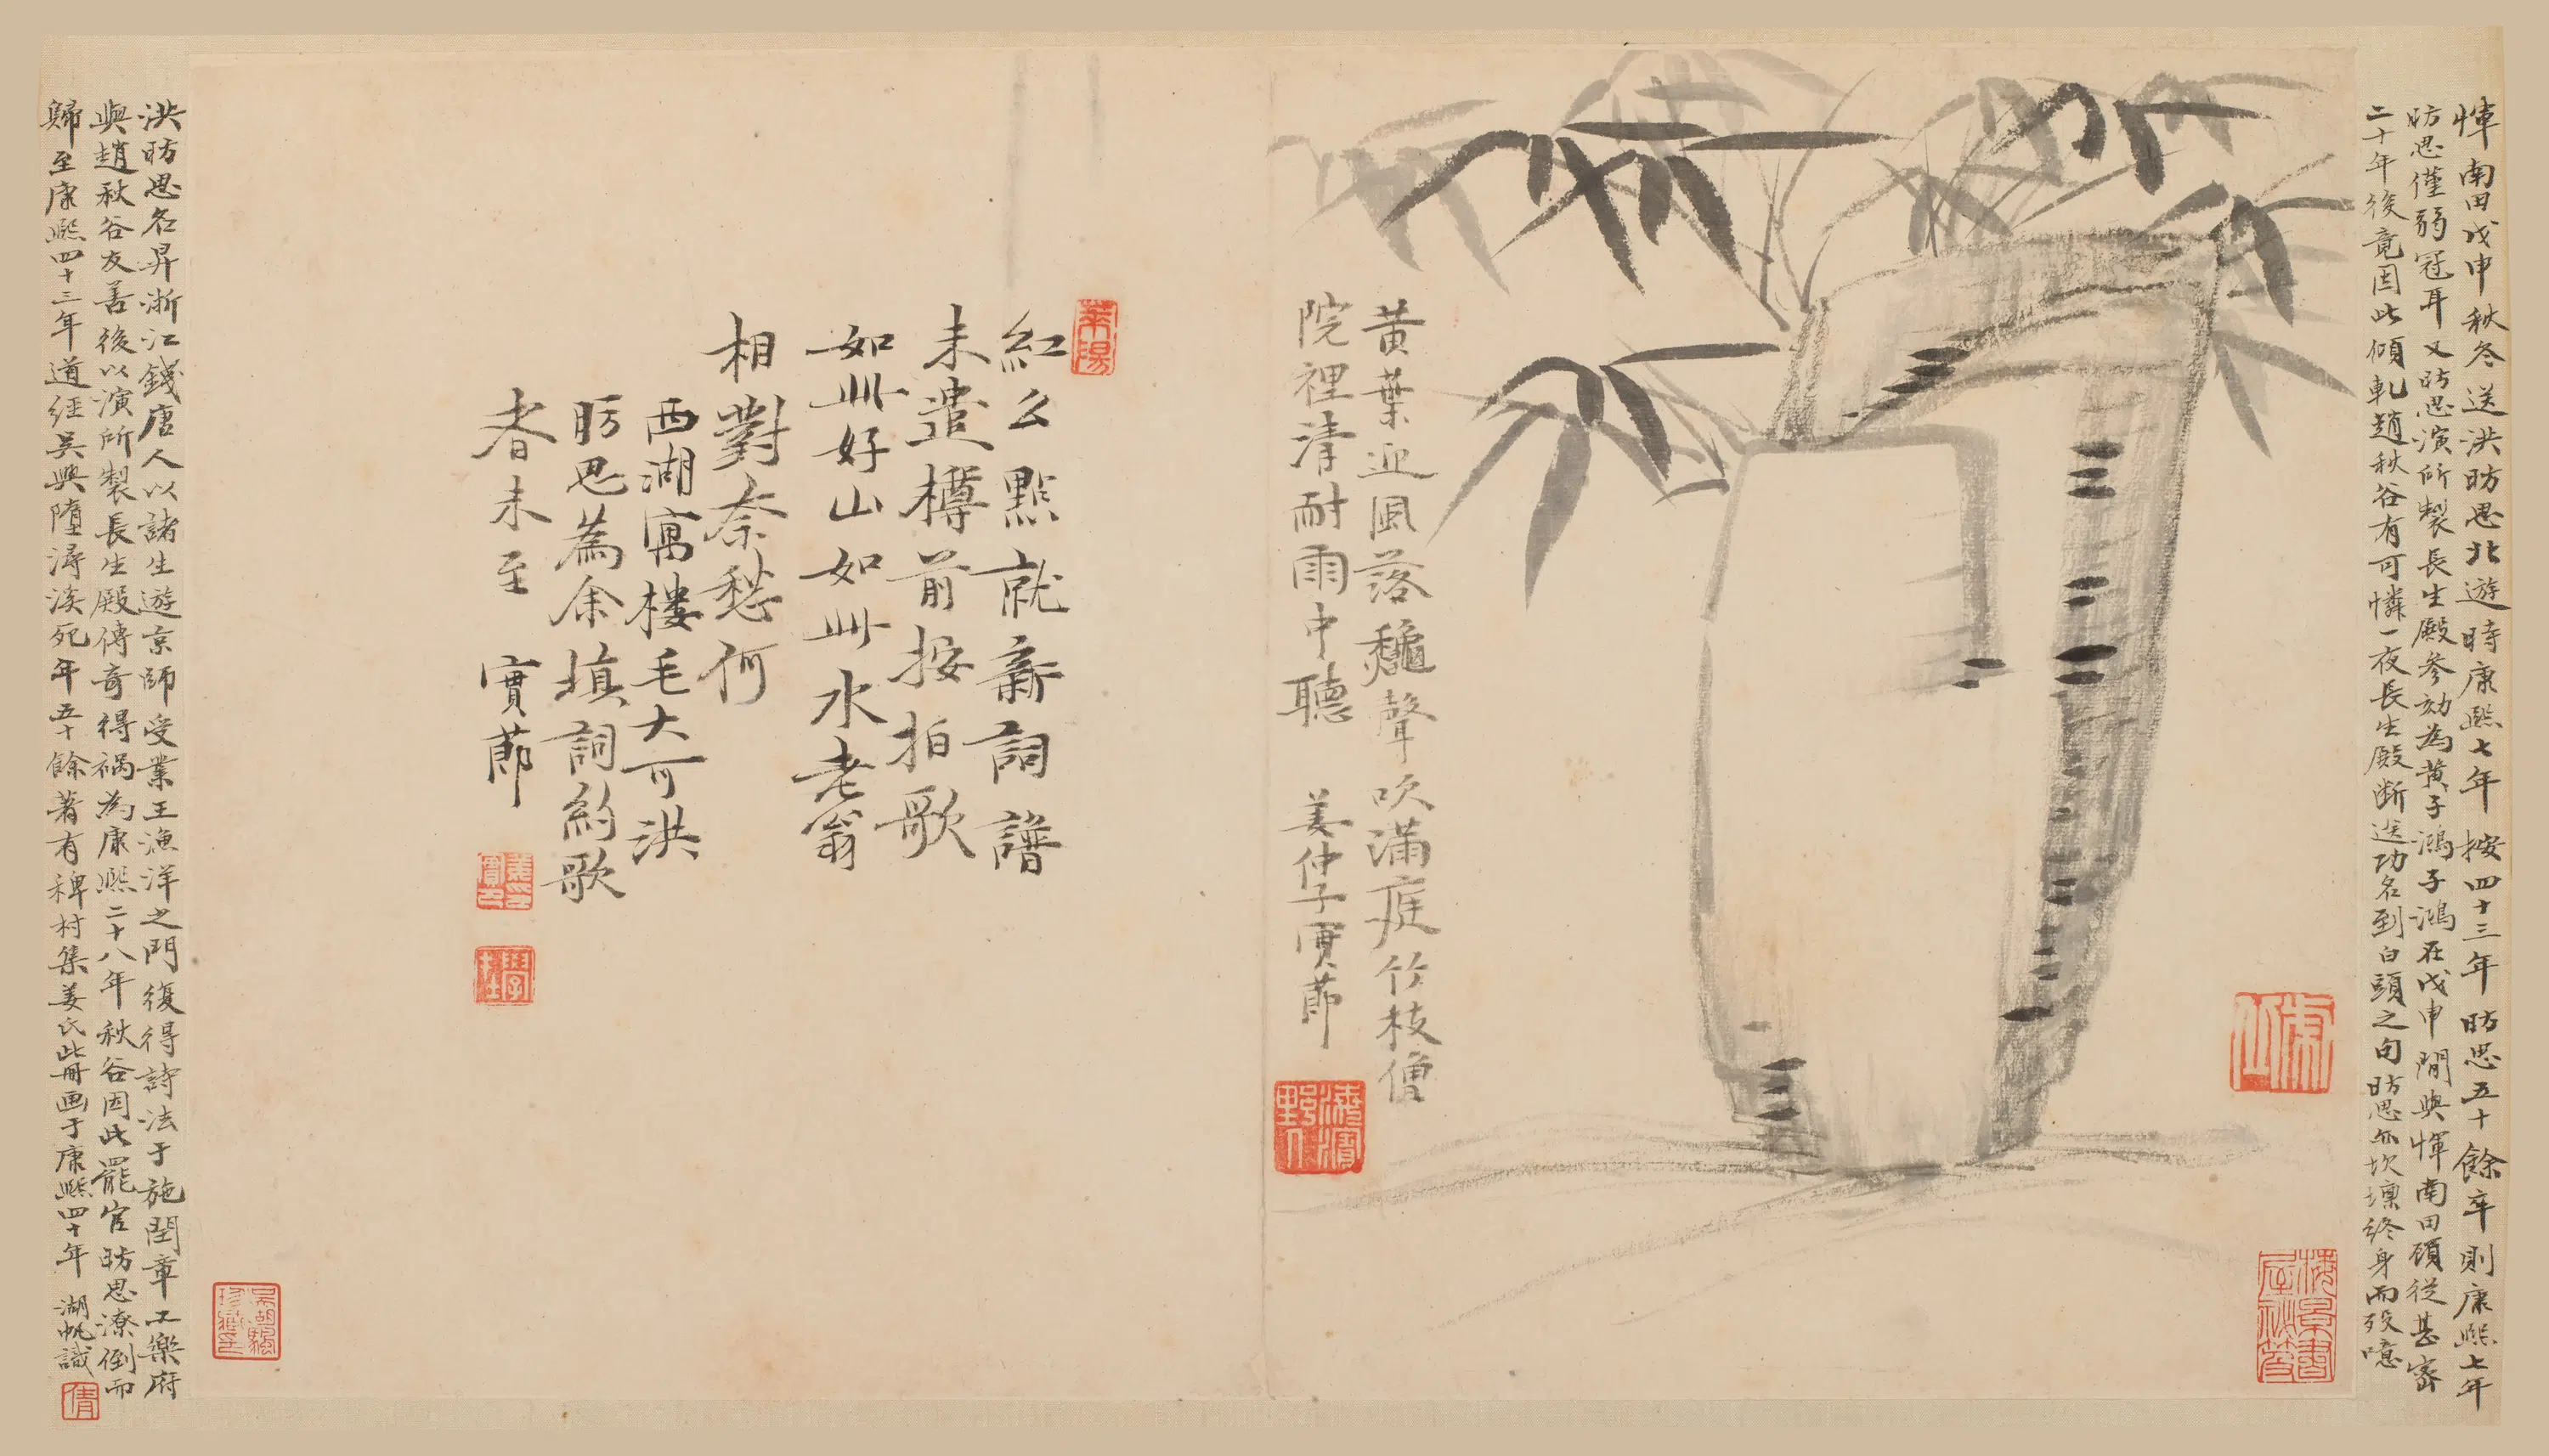 惲南田戊申秋冬送洪昉思北遊時康熙七年按四十三年昉思五十餘卒則康熙七年
昉思僅弱冠耳又昉思演所製長生殿參劾為黃子鴻子鴻在戊申間與惲南田顧從甚密
二十年後竟因此傾軋趙秋谷有可憐一夜長生殿斷送功名到白頭之句昉思亦坎壈終身而歿噫
黃葉迎風落龝聲吹滿庭竹枝僧
院裡清耐雨中聽 姜仲子實莭
紅么點就新詞譜
未遣樽前按拍歌
如此好山如此水老翁
相對奈愁何
西湖寓樓毛大可洪
昉思為余填詞約歌
者未至 實莭
洪昉思名昇浙江錢唐人以諸生遊京師受業王漁洋之門復得詩法于施閏章工樂府
與趙秋谷友善後以演所製長生殿傳奇得禍為康熙二十八年秋谷因此罷官昉思潦倒而
歸至康熙四十三年道經吳興墮潯溪死年五十餘著有稗村集姜氏此冊画于康熙四十年 湖帆識
萊陽
梅景書屋秘笈
吳湖颿珍藏印
倩